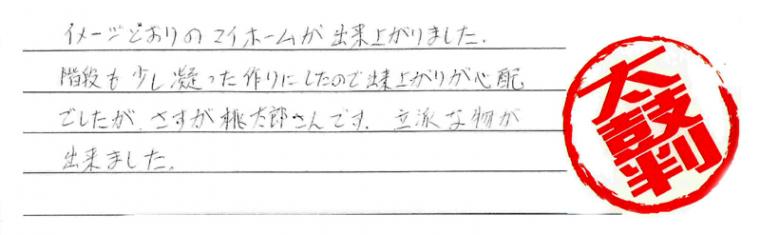 イメージどおりのマイホームが出来上がりました.
階段も少し凝った作りにしたので出来上がりが心配
でしたが、さすが桃太郎さんです. 立派な物が
出来ました。
太鼓判